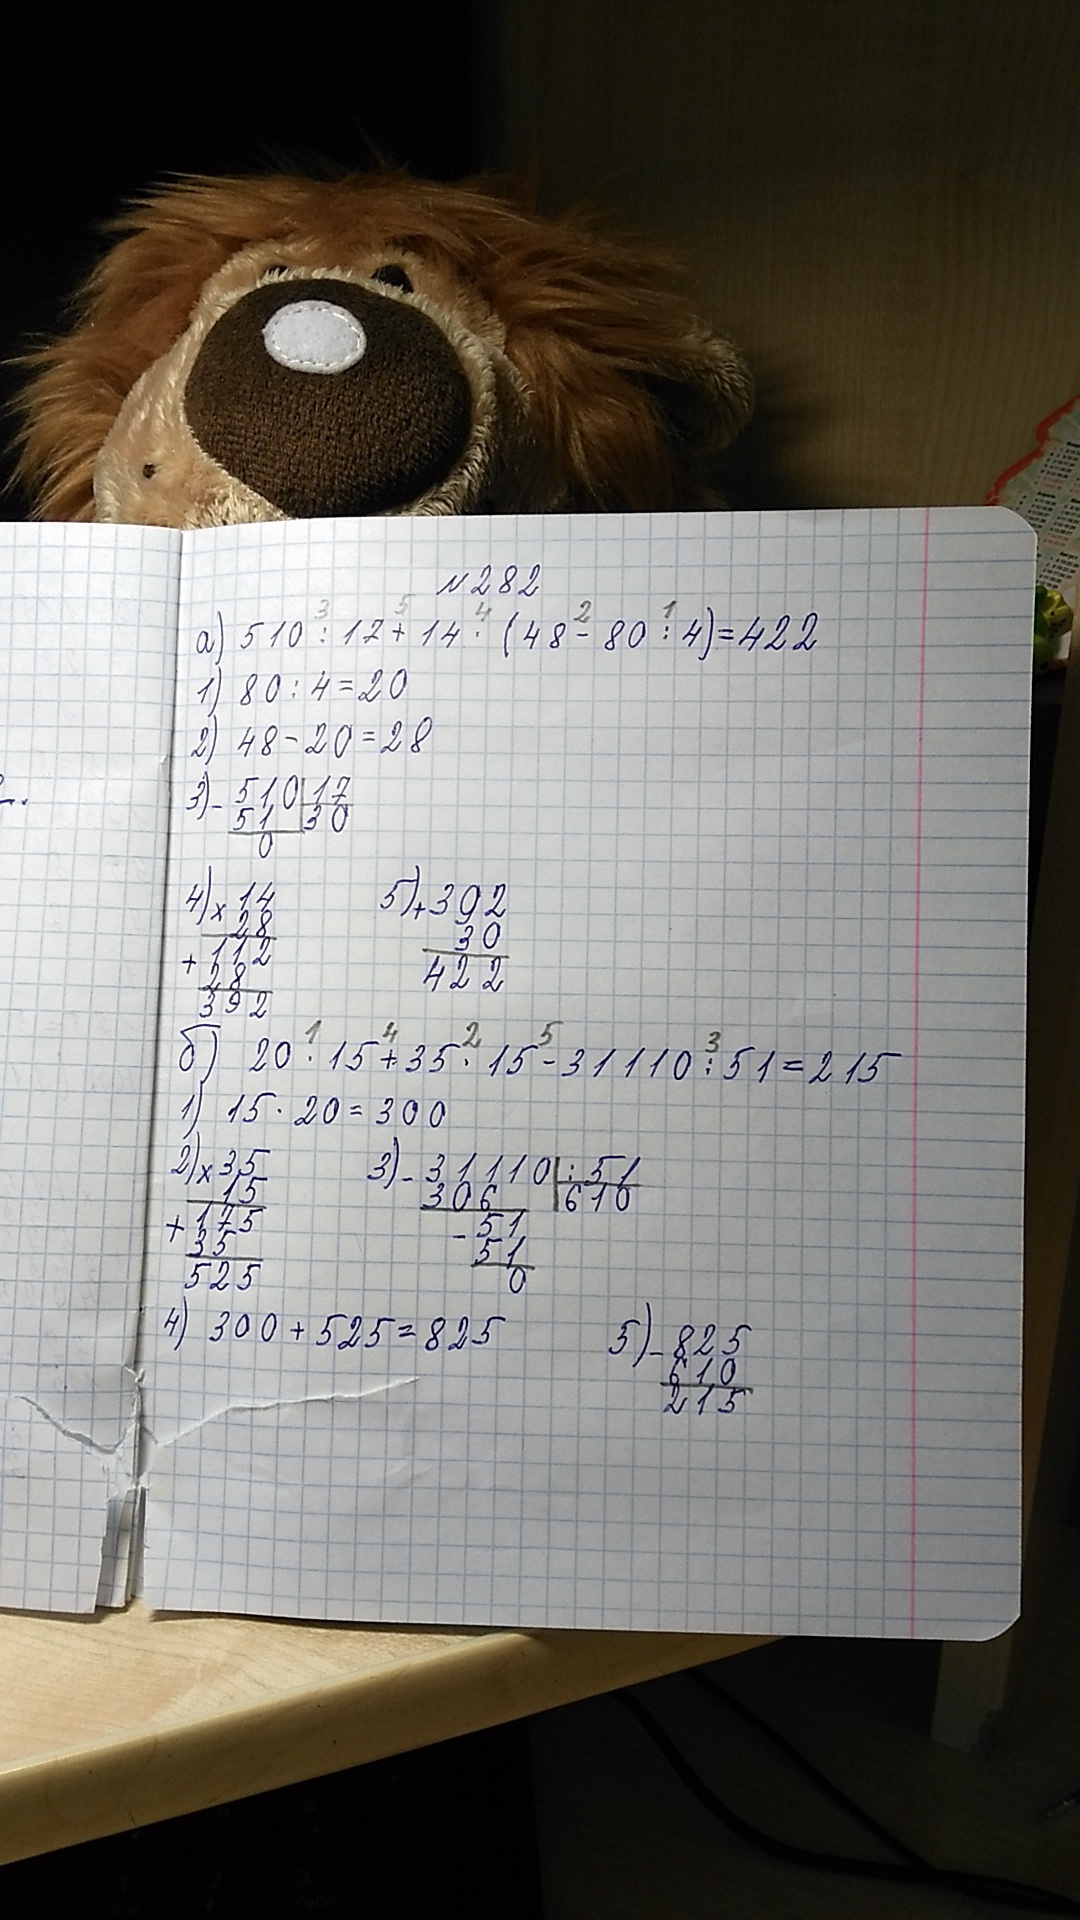 №282
3 5 4 2 1
а) 510 : 17 + 14 · (48 - 80 : 4) = 422
1) 80 : 4 = 20
2) 48 - 20 = 28
3) - 510 | 17
51 30
0
4) x 14
28
+ 112
28
392
5) + 392
30
422
1 4 2 5 3
б) 20 · 15 + 35 · 15 - 31110 : 51 = 215
1) 15 · 20 = 300
2) x 35
15
+ 175
35
525
3) - 31110 | : 51
306 610
- 51
51
0
4) 300 + 525 = 825
5) - 825
610
215